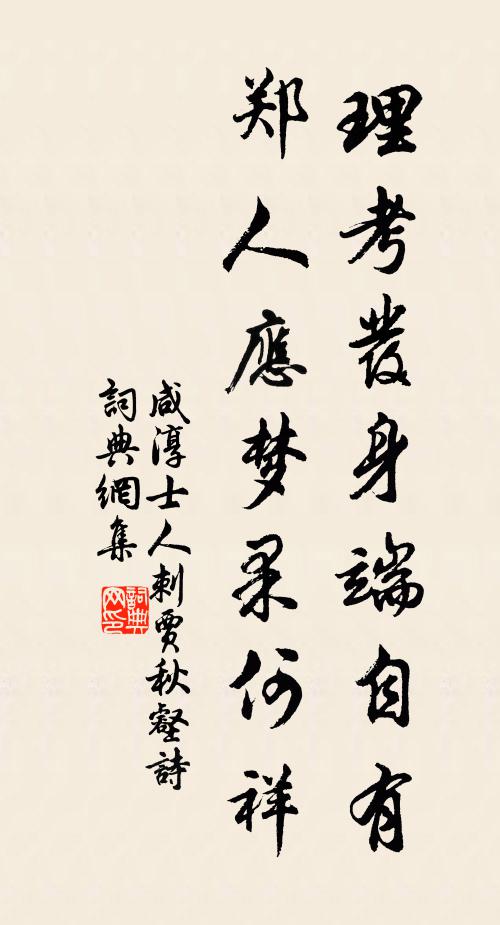 理考發身端自有
郑人應梦果何祥
咸淳士人刺賈秋壑詩
詞典網集
詞典网印